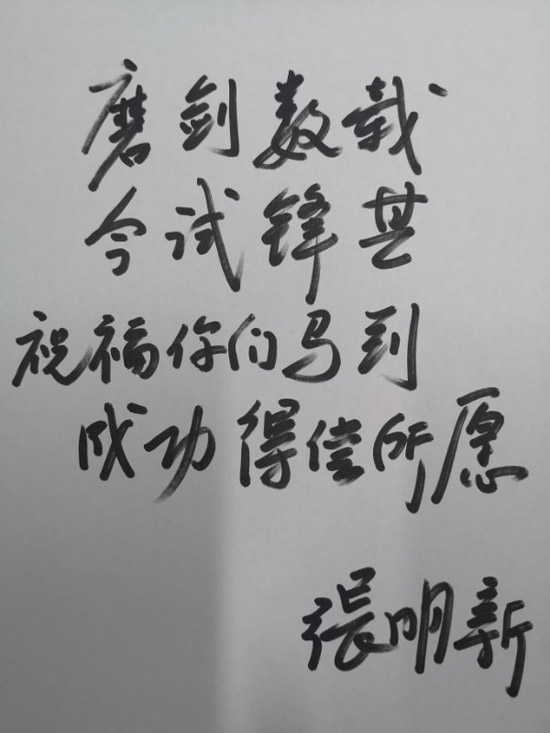 磨剑数载
今试锋芒
祝福你们马到
成功得偿所愿
張明新